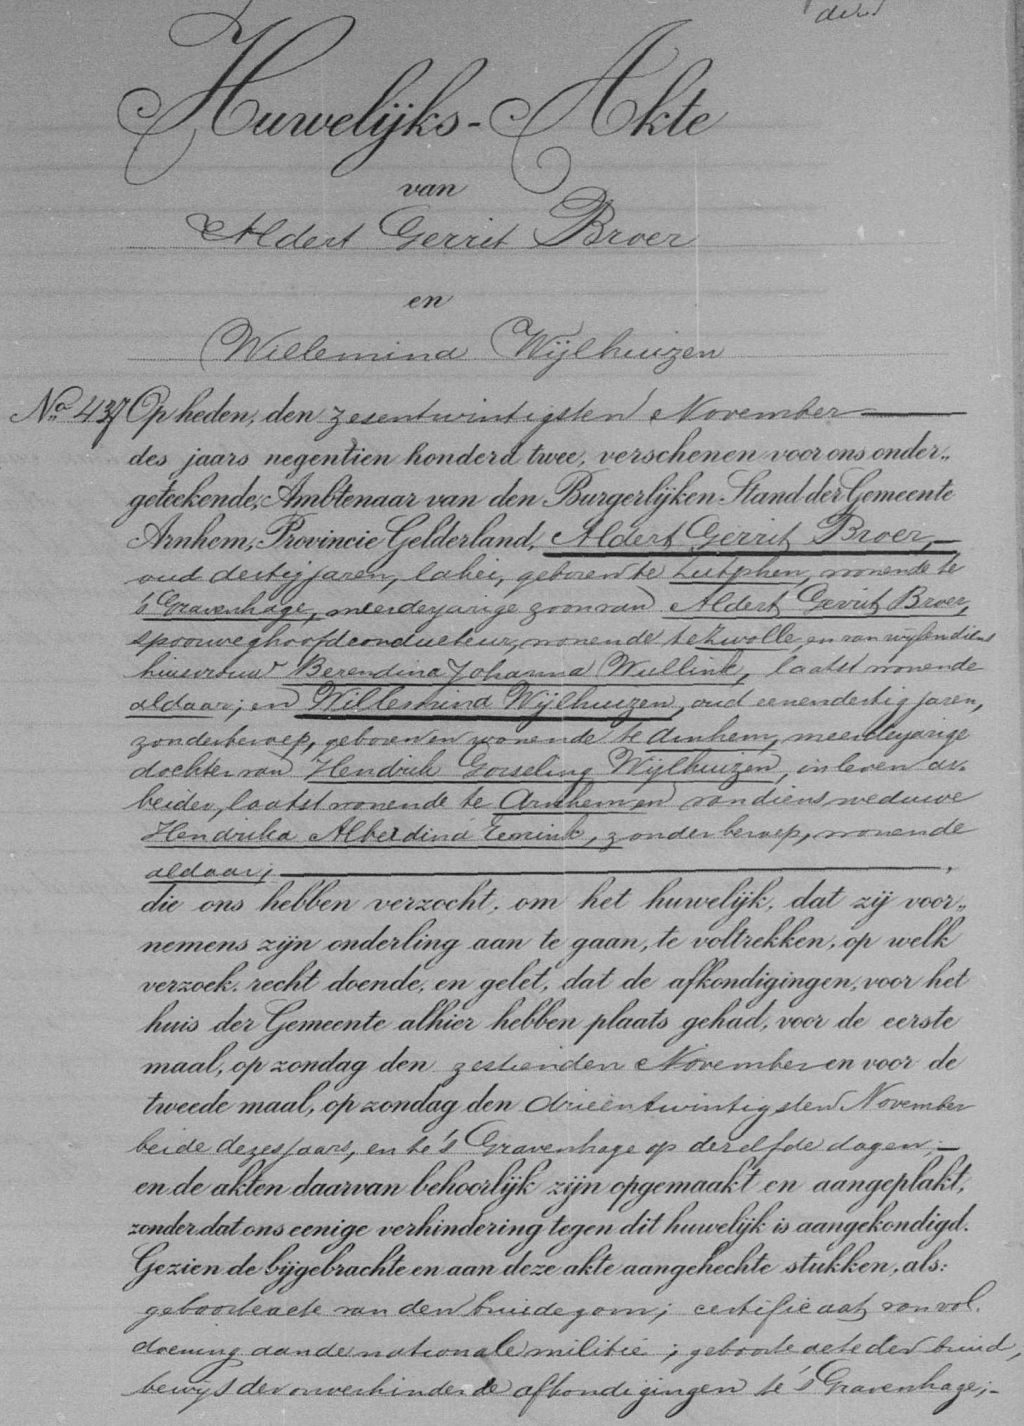 Huwelijks-Akte
van
Aldert Gerrit Broer
en
Willemina Wijlhuizen
No. 437 Op heden, den zesentwintigsten November
des jaars negentien honderd twee, verschenen voor ons onder-
geteekende, Ambtenaar van den Burgerlijken Stand der Gemeente
Arnhem, Provincie Gelderland, Aldert Gerrit Broer,
oud dertig jaren, lakei, geboren te Zutphen, wonende te
's Gravenhage, meerderjarige zoon van Aldert Gerrit Broer,
spoorweghoofdconducteur, wonende te Zwolle, en van wijlen diens
huisvrouw Berendina Johanna Wullink, laatst wonende
aldaar; en Willemina Wijlhuizen, oud eenendertig jaren,
zonder beroep, geboren en wonende te Arnhem, meerderjarige
dochter van Hendrik Gosseling Wijlhuizen, in leven ar-
beider, laatst wonende te Arnhem en van diens weduwe
Hendrika Alberdina Temink, zonder beroep, wonende
aldaar;
die ons hebben verzocht, om het huwelijk, dat zij voor-
nemens zijn onderling aan te gaan, te voltrekken, op welk
verzoek, recht doende, en gelet, dat de afkondigingen, voor het
huis der Gemeente alhier hebben plaats gehad, voor de eerste
maal, op zondag den zestienden November en voor de
tweede maal, op zondag den drieentwintigsten November
beide dezes jaars, en te 's Gravenhage op dezelfde dagen;
en de akten daarvan behoorlijk zijn opgemaakt en aangeplakt,
zonder dat ons eenige verhindering tegen dit huwelijk is aangekondigd.
Gezien de bijgebrachte en aan deze akte aangehechte stukken, als:
geboorteacte van den bruidegom; certificaat van vol-
doening aan de nationale militie; geboorteacte der bruid,
bewijs der onverhinderde afkondigingen te 's Gravenhage;